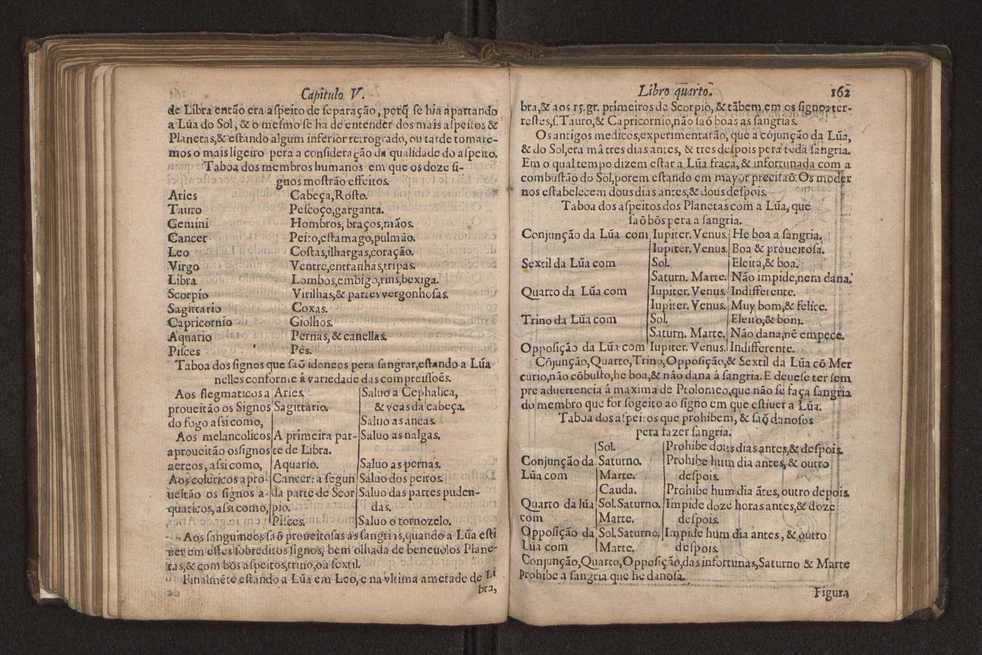 Capitulo V.
de Libra então era aspeito de separação, porq̃ se hia apartando
a Lũa do Sol, & o mesmo se ha de entender dos mais aspeitos &
Planetas,& estando algum inferior retrogrado, ou tarde tomare-
mos o mais ligeiro pera a consideração da qualidade do aspeito.
Taboa dos membros humanos em que os doze si-
gnos mostrão effeitos.
Aries Cabeça, Rosto.
Tauro Pescoço, garganta.
Gemini Hombros, braços, mãos.
Cancer Peito, estamago, pulmão.
Leo Costas, ilhargas, coração.
Virgo Ventre, entranhas, tripas.
Libra Lombos, embigo, rins, bexiga.
Scorpio Virilhas, & partes vergonhosas.
Sagittario Coxas.
Capricornio Giolhos.
Aquario Pernas, & canellas.
Pisces Pés.
Taboa dos signos que saõ idoneos pera sangrar, estando a Lũa
nelles conforme á variedade das compreissões.
Aos flegmaticos a Aries Saluo a Cephalica,
proueitão os Signos Sagittario. & veas da cabeça.
do fogo assi como, Saluo as ancas.
Aos melancolicos A primeira par- Saluo as nalgas.
aproueitão os signos te de Libra.
aereos, assi como, Aquario. Saluo as pernas.
Aos colericos apro- Cancer: a segun Saluo dos peitos.
ueitão os signos a- da parte de Scor Saluo das partes puden-
quaticos, assi como, pio. das.
Pisces. Saluo o tornozelo.
Aos sanguineos saõ proueitosas as sangrias, quando a Lũa esti
uer em estes sobreditos signos, bem olhada de beneuolos Plane-
tas, & com bõs aspeitos, trino, ou sextil.
Finalmẽte estando a Lũa em Leo, e na vltima ametade de Li
bra,
Libro quarto. 162
bra, & aos 15. gr. primeiros de Scorpio, & tãbem em os signos ter-
restes, s. Tauro, & Capricornio, não saõ boas as sangrias.
Os antigos medicos, experimentarão, que a cõjunção da Lũa,
& do Sol, era má tres dias antes, & tres despois pera toda sangria.
Em o qual tempo dizem estar a Lũa fraca, & infortunada com a
combustão do Sol, porem estando em mayor precisaõ: Os moder
nos estabelecem dous dias antes, & dous despois.
Taboa dos aspeitos dos Planetas com a Lũa, que
saõ bõs pera a sangria.
Conjunção da Lũa com Iupiter. Venus. He boa a sangria.
Iupiter. Venus. Boa & proueitosa.
Sextil da Lũa com Sol. Eleita, & boa.
Saturn. Marte. Não impide, nem dana.
Quarto da Lũa com Iupiter. Venus. Indifferente.
Iupiter. Venus. Muy bom, & felice.
Trino da Lũa com Sol. Eleito, & bom.
Saturn. Marte. Não dana, nẽ empece.
Opposição da Lũa com Iupiter. Venus. Indifferente.
Cõjunção, Quarto, Trino, Opposição, & Sextil da Lũa cõ Mer
curio, não cõbusto, he boa, & não dana á sangria. E deuese ter sem
pre aduertencia á maxima de Ptolomeo, que não se faça sangria
do membro que for sogeito ao signo em que estiuer a Lũa.
Taboa dos aspeitos que prohibem, & saõ danosos
pera fazer sangria.
Sol. Prohibe dous dias antes, & despois.
Conjunção da Saturno. Prohibe hum dia antes, & outro
Lũa com Marte. despois.
Cauda. Prohibe hum dia ãtes, outro depois.
Quarto da lũa Sol. Saturno. Impide doze horas antes, & doze
com Marte. despois.
Opposição da Sol. Saturno. Impide hum dia antes, & outro
Lũa com Marte. despois.
Conjunção, Quarto, Opposição, das infortunas, Saturno & Marte
Prohibe a sangria que he danosa.
Figura